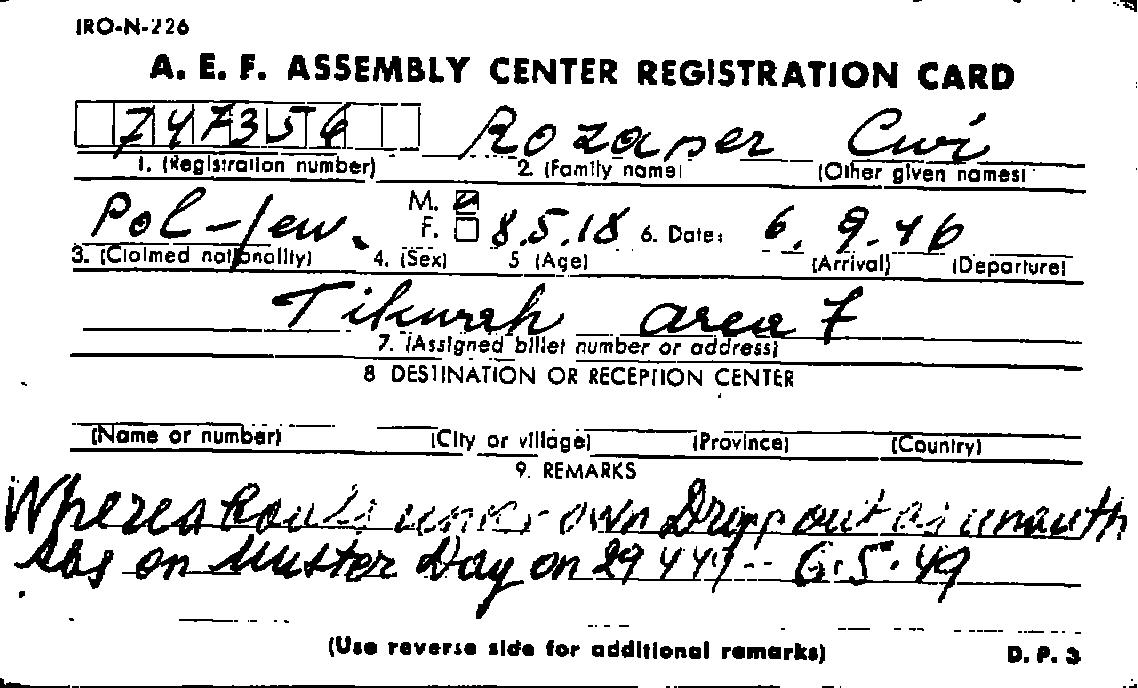 IRO-N-226
A. E. F. ASSEMBLY CENTER REGISTRATION CARD
747356 Rozaner Cwi
1. (Registration number) 2. (Family name) (Other given names)
Pol-Jew. M. F. 8.5.18 6. Date: 6. 9.46
3. (Claimed nationality) 4. (Sex) 5 (Age) (Arrival) (Departure)
area 7
7. (Assigned billet number or address)
8 DESTINATION OR RECEPTION CENTER
(Name or number) (City or village) (Province) (Country)
9. REMARKS
Whereabouts unknown Dropp out as unauth
Abs on Muster Day on 29 4 49 -- 6.5.49
(Use reverse side for additional remarks) D. P. 3